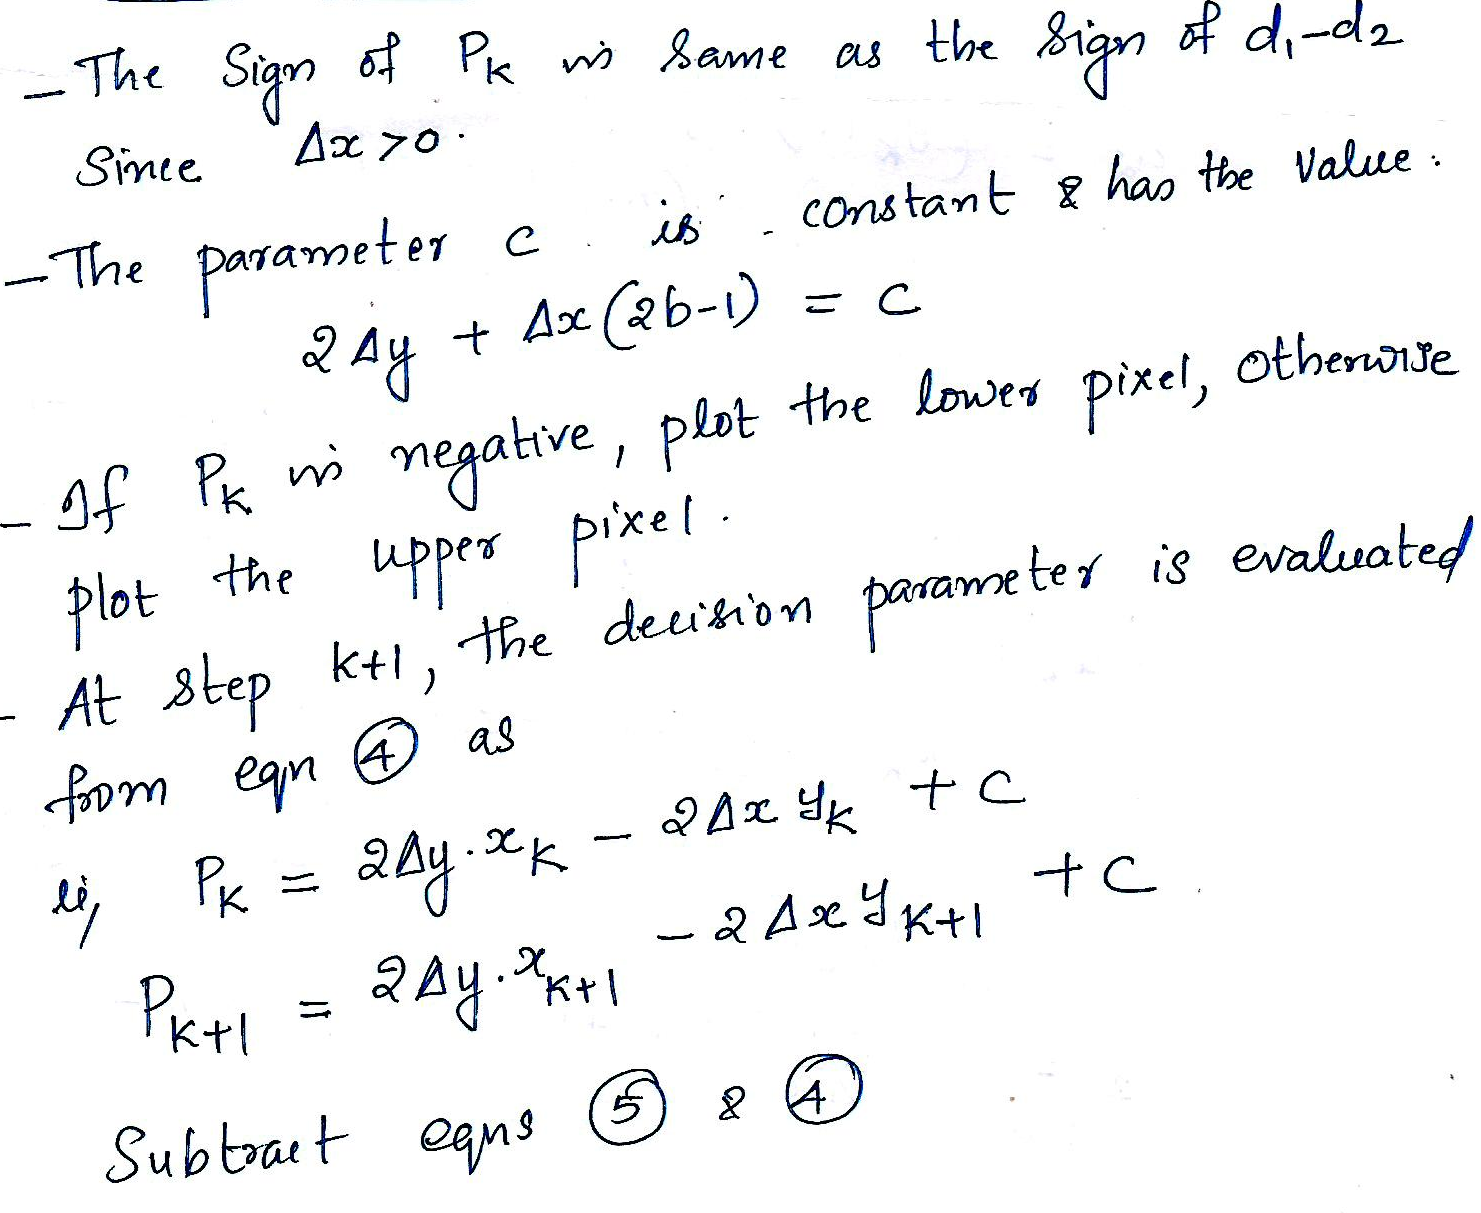 - The Sign of Pk is same as the sign of d1-d2
Since Δx >0.
- The parameter c is constant & has the value:
2Δy + Δx(2b-1) = c
- If Pk is negative, plot the lower pixel, otherwise
plot the upper pixel.
- At step k+1, the decision parameter is evaluated
from eqn ④ as
ie, Pk = 2Δy.xk - 2Δx yk + c
Pk+1 = 2Δy.xk+1 - 2Δx yk+1 + c
Subtract eqns ⑤ & ④